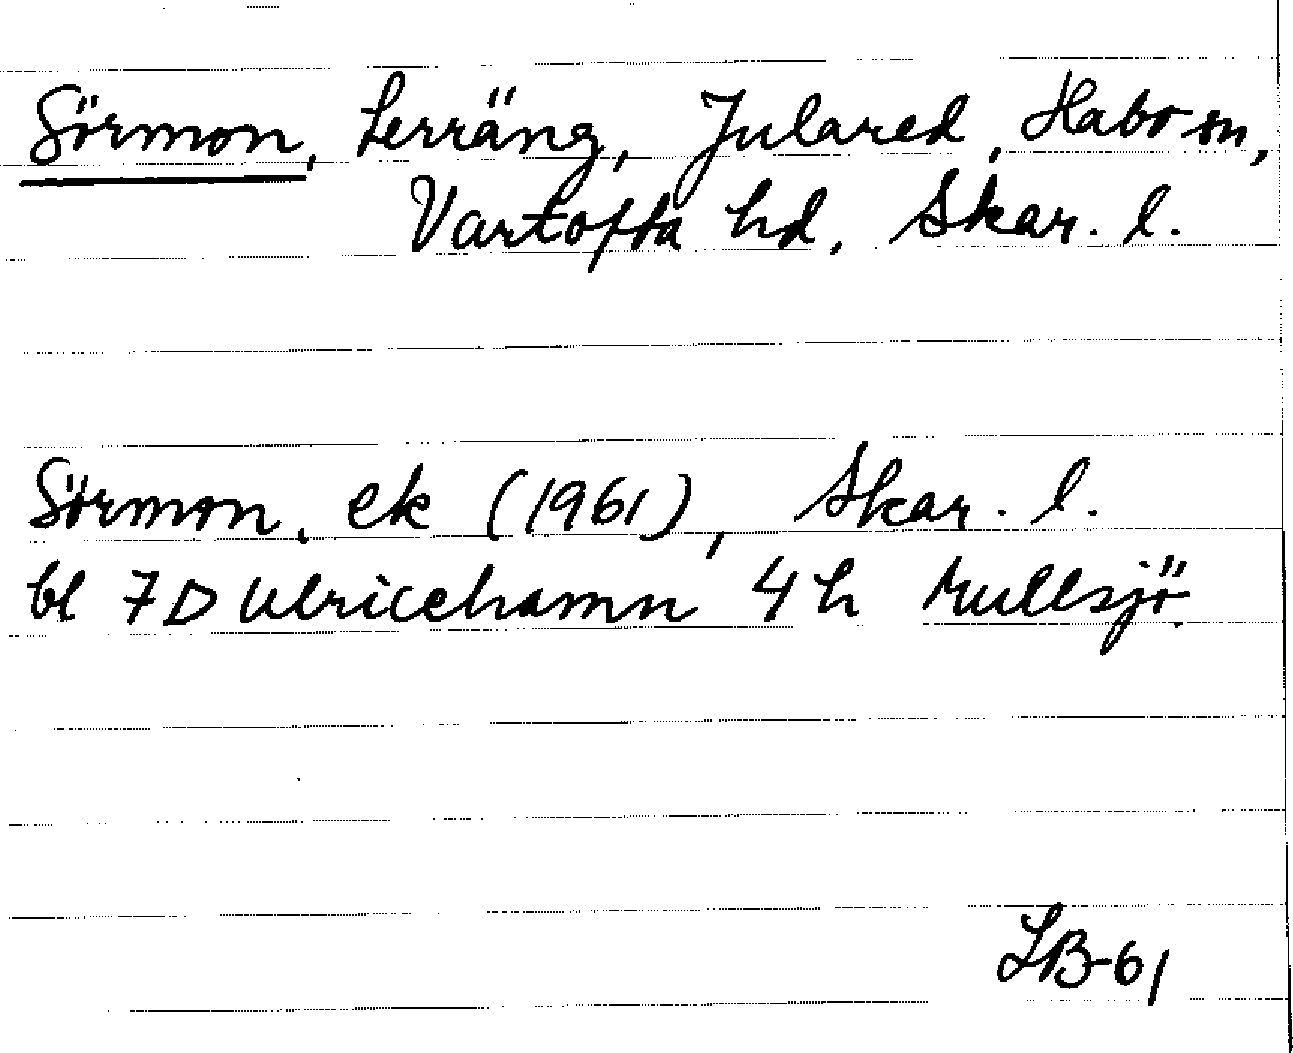 Sörmon, Lerräng, Julared, Habo sn,
Vartofta hd, Skar. l.
Sörmon, ek (1961), Skar. l.
bl 7D Ulricehamn 4h Mullsjö.
LB-61